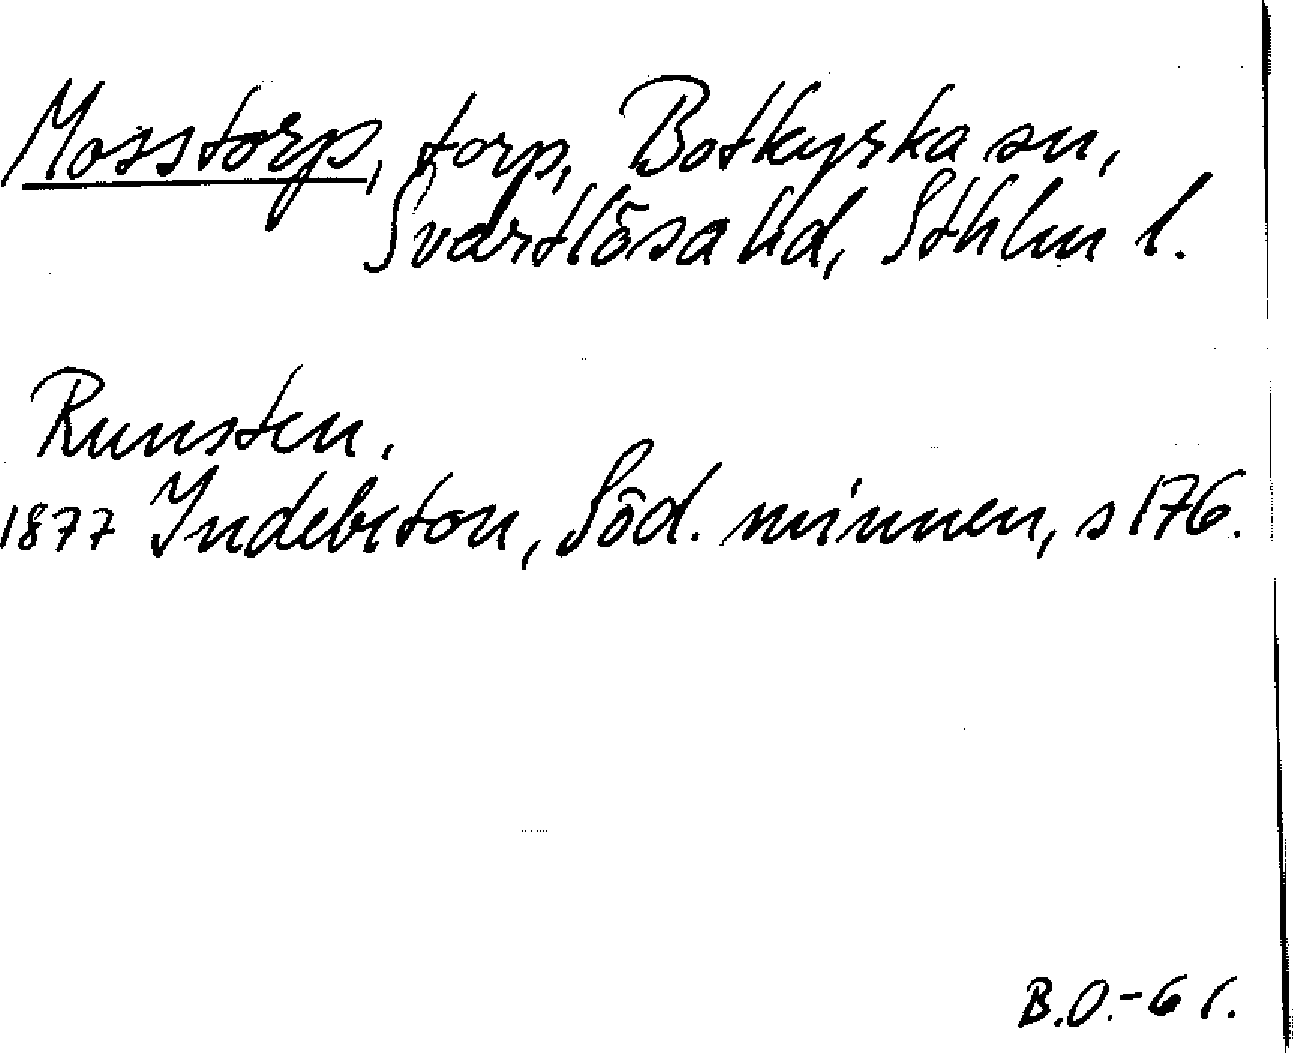 Mosstorp, torp, Botkyrka sn,
Svartlösa hd, Sthlm l.
Runsten.
1877 Indebetou, Söd. minnen, s 176.
B.O.-61.